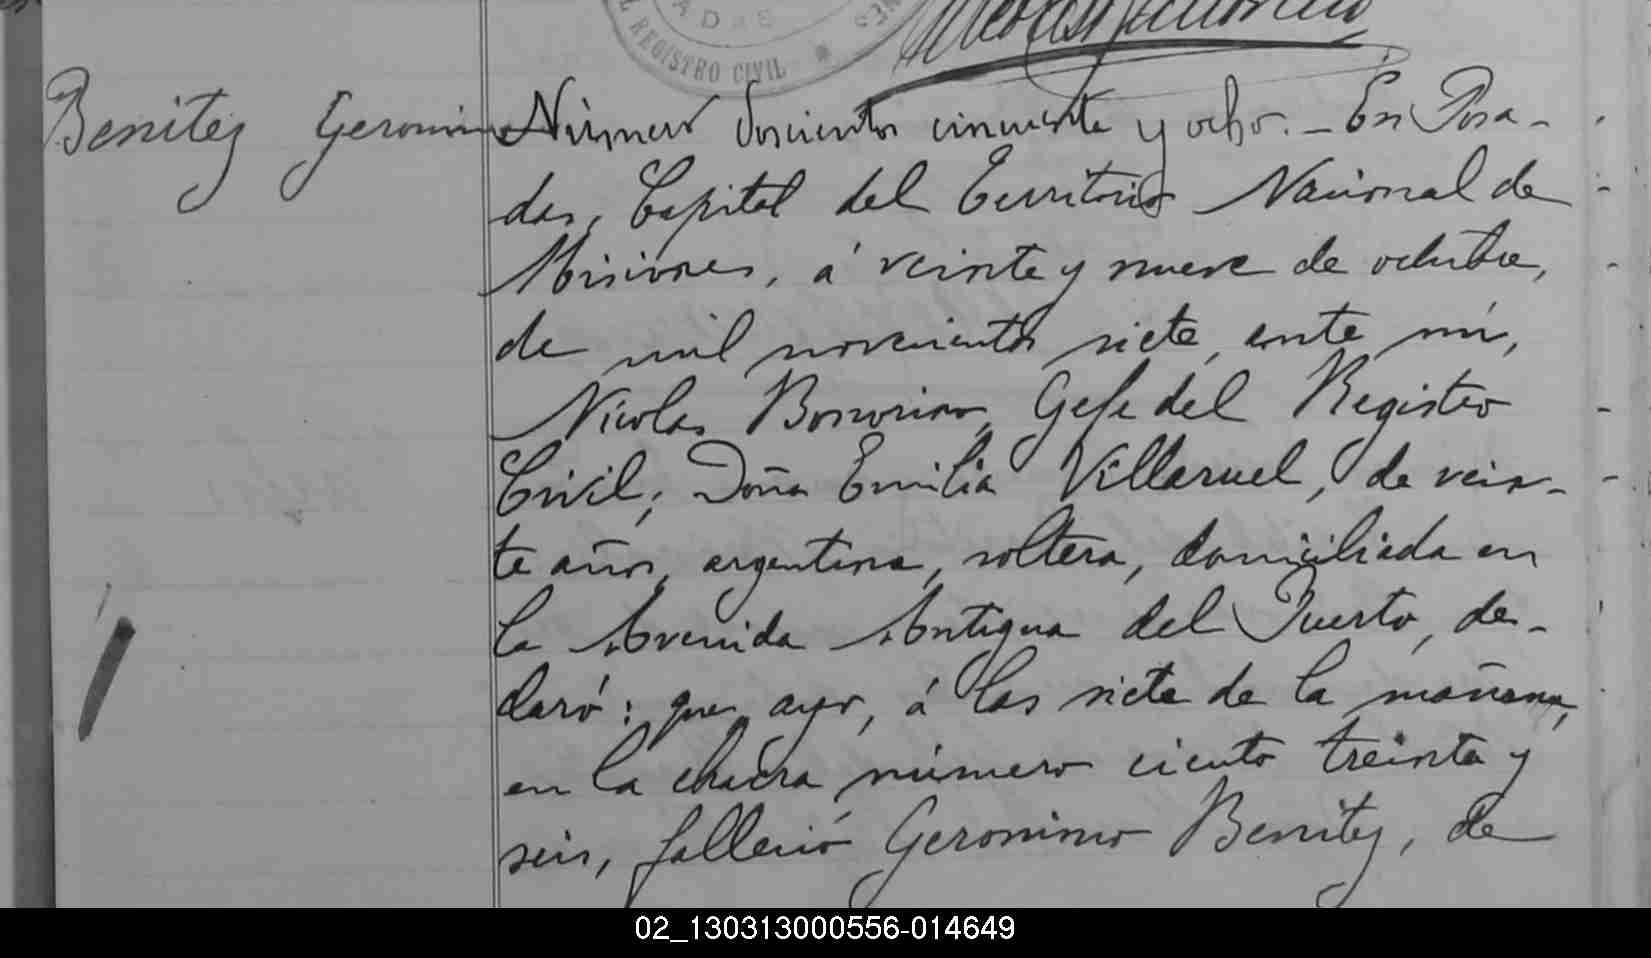 REGISTRO CIVIL
Benitez Geronimo
Número doscientos cincuenta y ocho. - En Posa-
das, Capital del Territorio Nacional de
Misiones, á veinte y nueve de octubre,
de mil novecientos siete, ante mí,
Nicolas Bonorino, Gefe del Registro
Civil; Doña Emilia Villaruel, de vein-
te años, argentina, soltera, domiciliada en
la Avenida Antigua del Puerto, de-
claró: que ayer, á las siete de la mañana,
en la chacra número ciento treinta y
seis, falleció Geronimo Benitez, de
02_130313000556-014649